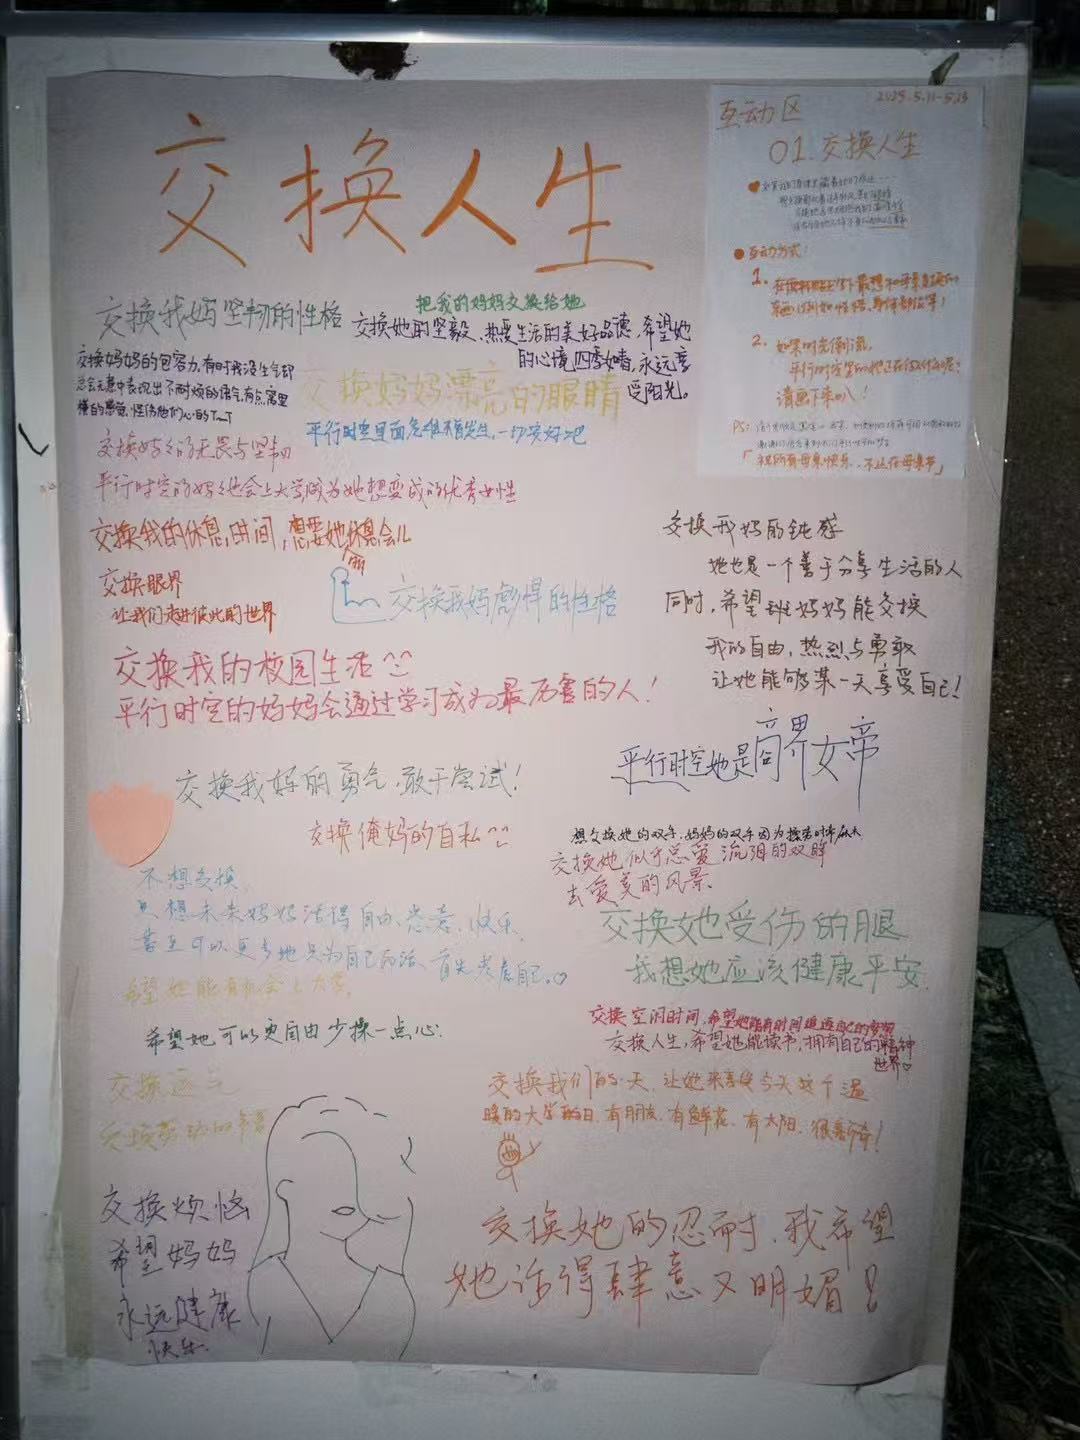 交换人生
互动区
2025.5.11-5.13
01.交换人生
互动方式:
1.
2. 如果时光倒流,
平行时空的她正在做什么呢?
请画下来叭!
PS:
「祝所有母亲快乐,不止在母亲节」
交换我妈坚韧的性格
把我的妈妈交换给她
交换她的坚毅,热爱生活的美好品德,希望她
的心境四季如春,永远享
受阳光。
交换妈妈的包容力,有时我没生气却
总会无意中表现出不耐烦的语气,有点窝里
横的感觉,怪伤他们心的T_T
交换妈妈漂亮的眼睛
平行时空里面危难不曾发生,一切安好吧
交换妈妈的无畏与坚韧
平行时空的妈妈也会上大学成为她想变成的优秀女性
交换我的休息时间,想要她休息会儿
交换眼界
让我们走进彼此的世界
交换我妈彪悍的性格
交换我妈的钝感
她也是一个善于分享生活的人
同时,希望我妈妈能交换
我的自由,热烈与勇敢
让她能够某一天享受自己!
交换我的校园生活^^
平行时空的妈妈会通过学习成为最厉害的人!
平行时空她是商界女帝
交换我妈的勇气,敢于尝试!
交换俺妈的自私^^
想交换她的双手,妈妈的双手因为操劳时常
交换她似乎总爱流泪的双眸
去爱美的风景
不想交换,
只想未来妈妈活得自由、恣意、快乐,
甚至可以更多地只为自己而活、首先考虑自己。♡
希望她能有机会上大学。
交换她受伤的腿
我想她应该健康平安.
希望她可以更自由少操一点心.
交换空闲时间,希望她能有时间追逐自己的梦想
交换人生,希望她能读书,拥有自己的精神
世界♡
交换运气
交换我们的一天,让她来享受今天这个温
暖的大学的日,有朋友,有鲜花,有太阳,很美好!
交换烦恼
希望妈妈
永远健康
快乐.
交换她的忍耐,我希望
她活得肆意又明媚!